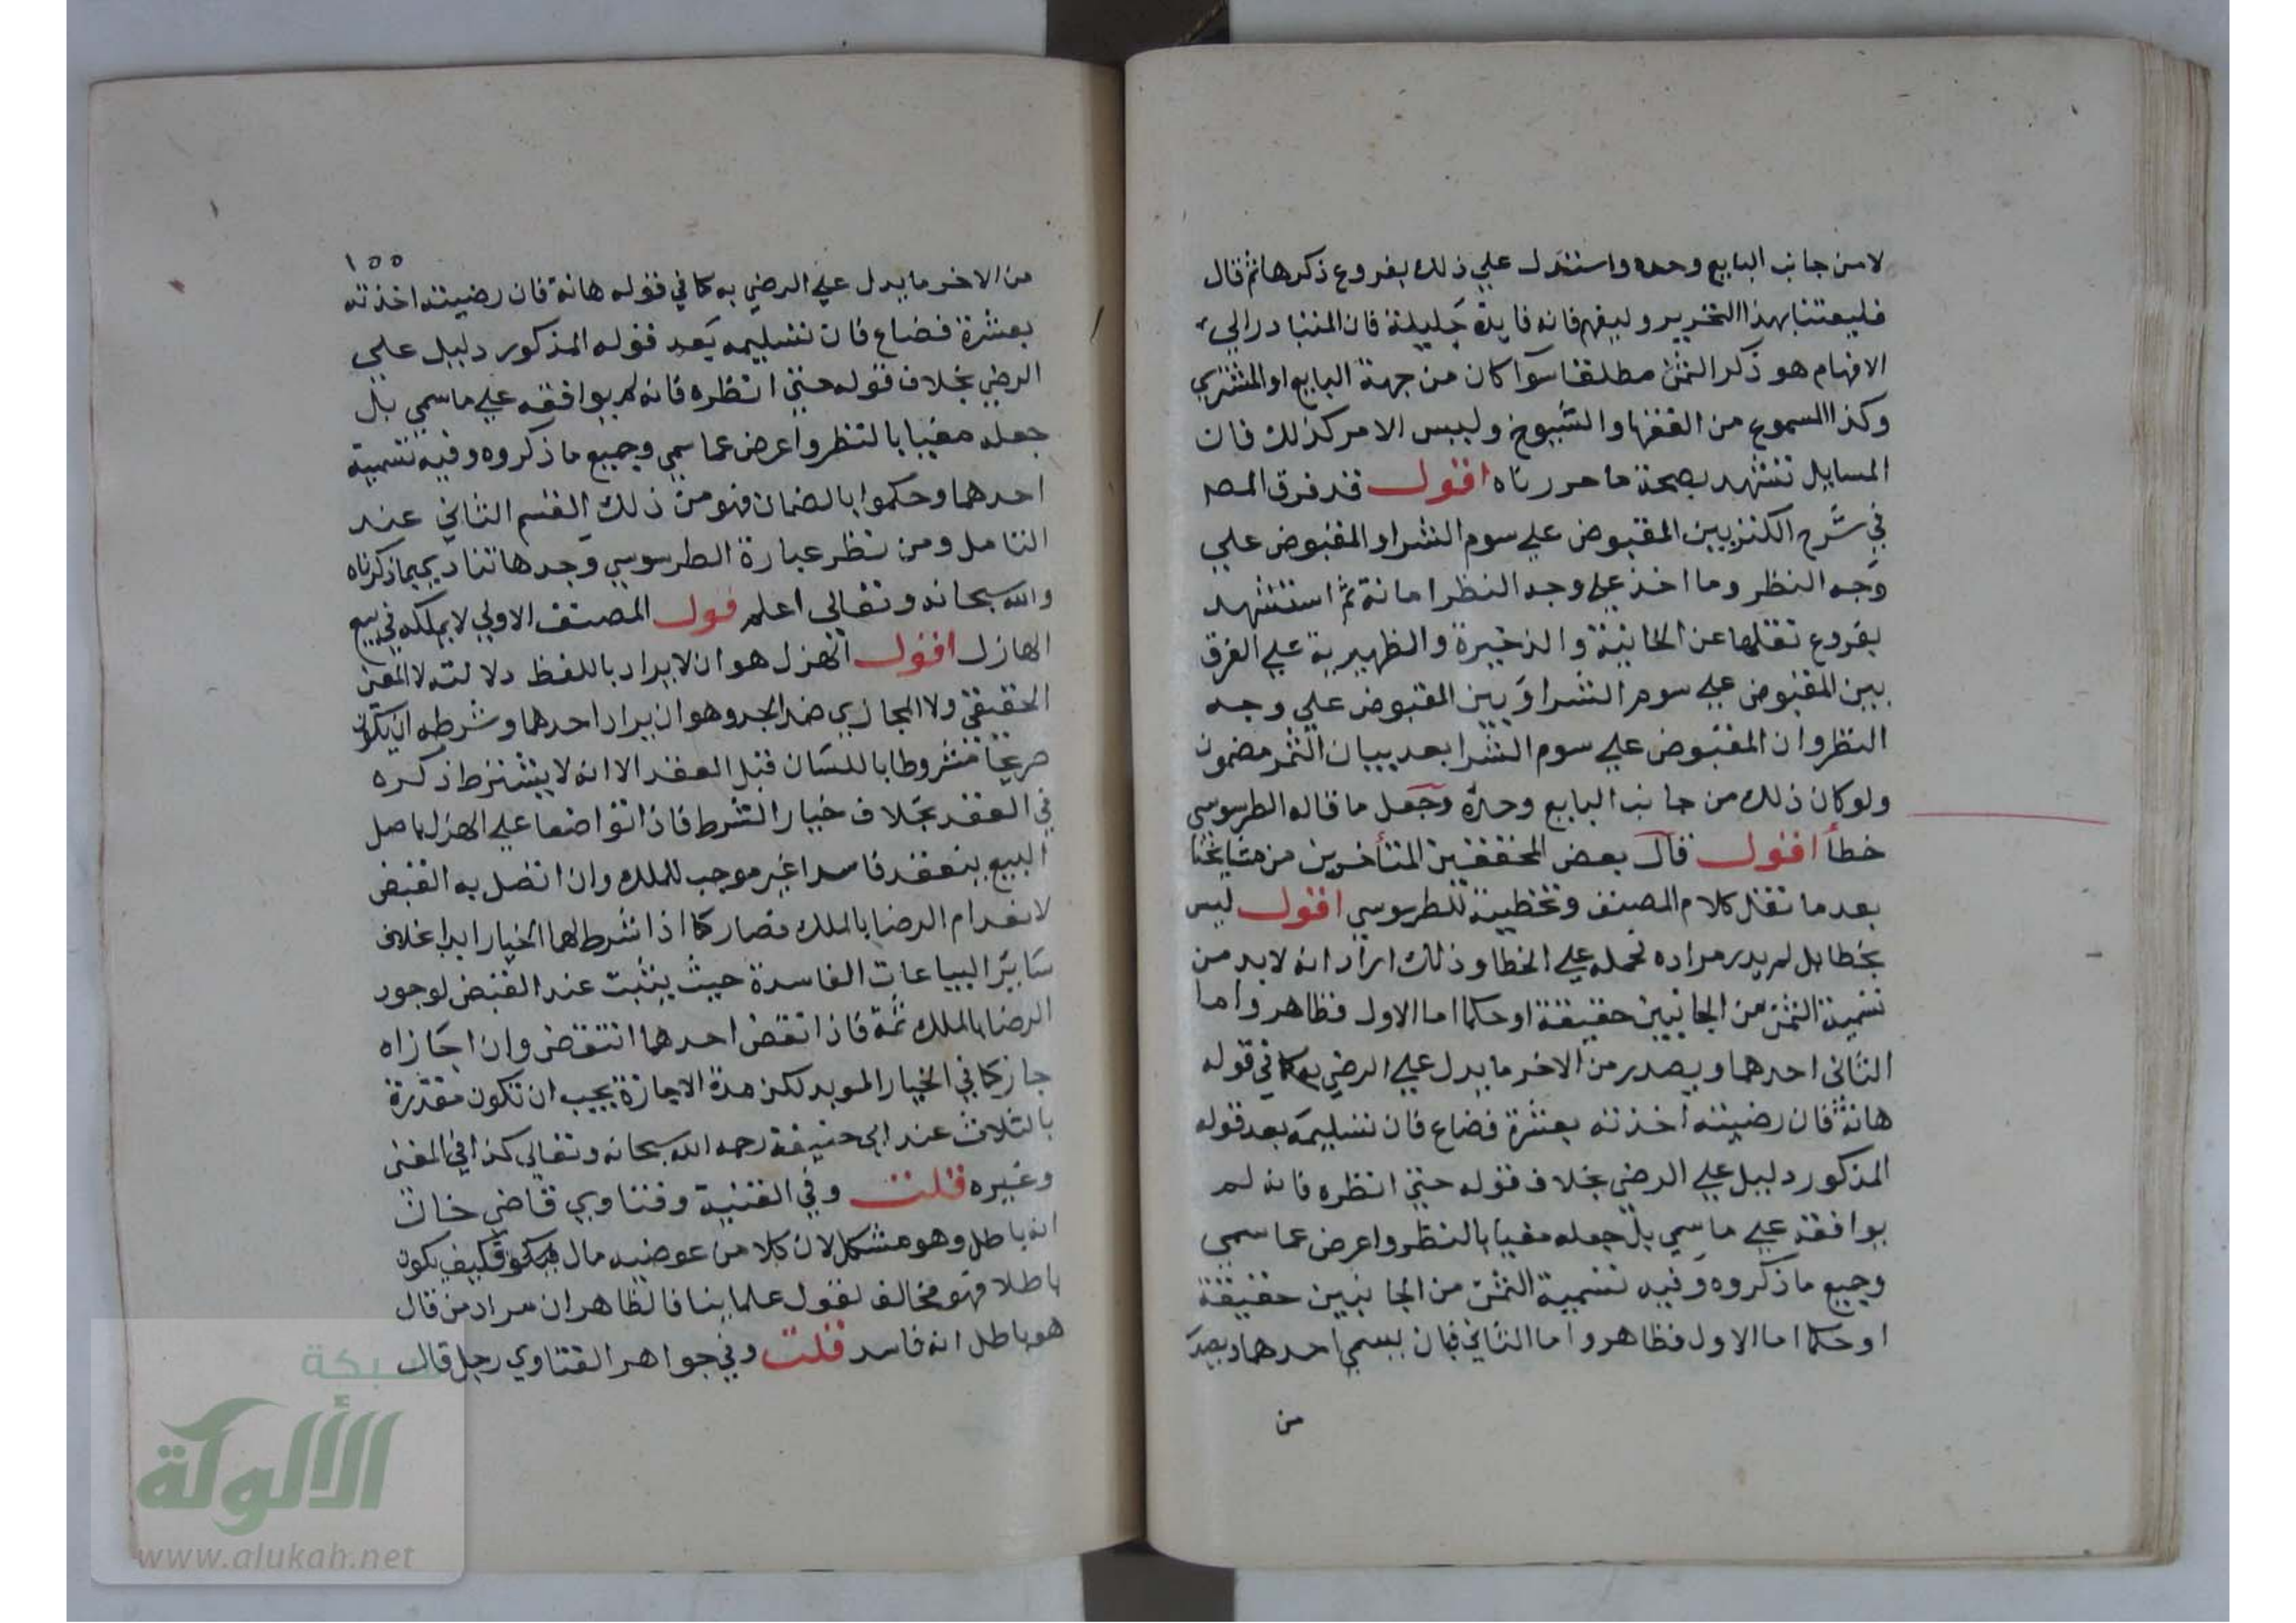 لا من جانب البايع وحده واستدل علي ذلك بفروع ذكرها ثم قال
فليعتنا بهذا التحرير وليفهم فانه فايدة جليلة فان المتبادر الي
الافهام هو ذكر الثمن مطلقا سوآ كان من جهة البايع او المشتري
وكذا المسموع من الفقها والشيوخ وليس الامر كذلك فان
المسايل تشهد بصحة ما حررناه اقول قد فرق المصـ
في شرح الكنز بين المقبوض علي سوم الشرا و المقبوض علي
وجه النظر وما اخذ علي وجه النظر امانة ثم استشهد
بفروع نقلها عن الخانية و الذخيرة و الظهيرية علي الفرق
بين المقبوض علي سوم الشرا وبين المقبوض علي وجه
النظر وان المقبوض علي سوم الشرا بعد بيان الثمن مضمون
ولو كان ذلك من جانب البايع وحده وجعل ما قاله الطرسوسي
خطأ اقول قال بعض المحققين المتأخرين من مشايخنا
بعد ما نقل كلام المصنف وتخطيئة للطرسوسي اقول ليس
بخطا بل لم يدر مراده فحمله علي الخطا وذلك اراد انه لا بد من
تسمية الثمن من الجانبين حقيقة او حكما اما الاول فظاهر واما
الثاني احدهما ويصدر من الاخر ما يدل علي الرضي به كما في قوله
هاته فان رضيته اخذته بعشرة فضاع فان تسليمه بعد قوله
المذكور دليل علي الرضي بخلاف قوله حتي انظره فانه لم
يوافقه علي ما سمي بل جعله مغيا بالنظر واعرض عما سمي
وجميع ما ذكروه وفيه تسمية الثمن من الجانبين حقيقة
او حكما اما الاول فظاهر واما الثاني فبان يسمي احدهما ويصدر
من
١٥٥
من الاخر ما يدل علي الرضي به كما في قوله هاته فان رضيته اخذته
بعشرة فضاع فان تسليمه بعد قوله المذكور دليل علي
الرضي بخلاف قوله حتي انظره فانه لم يوافقه علي ما سمي بل
جعله مغيا بالنظر واعرض عما سمي وجميع ما ذكروه وفيه تسمية
احدهما وحكموا بالضمان فهو من ذلك القسم الثاني عند
التامل ومن نظر عبارة الطرسوسي وجدها تنادي بما ذكرناه
والله سبحانه وتعالي اعلم قول المصنف الاولي لا يملكه في بيع
الهازل اقول الهزل هو ان لا يراد باللفظ دلالته لا المعنى
الحقيقي ولا المجازي ضد الجد وهو ان يراد احدهما وشرطه ان يكون
صريحا مشروطا باللسان قبل العقد الا انه لا يشترط ذكره
في العقد بخلاف خيار الشرط فاذا تواضعا علي الهزل باصل
البيع ينعقد فاسدا غير موجب للملك وان اتصل به القبض
لانعدام الرضا بالملك فصار كما اذا شرط لهما الخيار ابدا بخلاف
سَاير البياعات الفاسدة حيث يثبت عند القبض لوجود
الرضا بالملك ثمة فاذا نقض احدهما انتقض وان اجازاه
جاز كما في الخيار المويد لكن مدة الاجازة يجب ان تكون مقدرة
بالثلاث عند ابي حنيفة رحمه الله سبحانه وتعالي كذا في المغنى
وغيره قلت وفي القنية وفتاوي قاضي خان
انه باطل وهو مشكل لان كلا من عوضيه مال فكيف يكون
باطلا فهو مخالف لقول علماينا فالظاهر ان مراد من قال
هو باطل انه فاسد قلت وفي جواهر الفتاوي رجل قال
شبكة
الألوكة
www.alukah.net